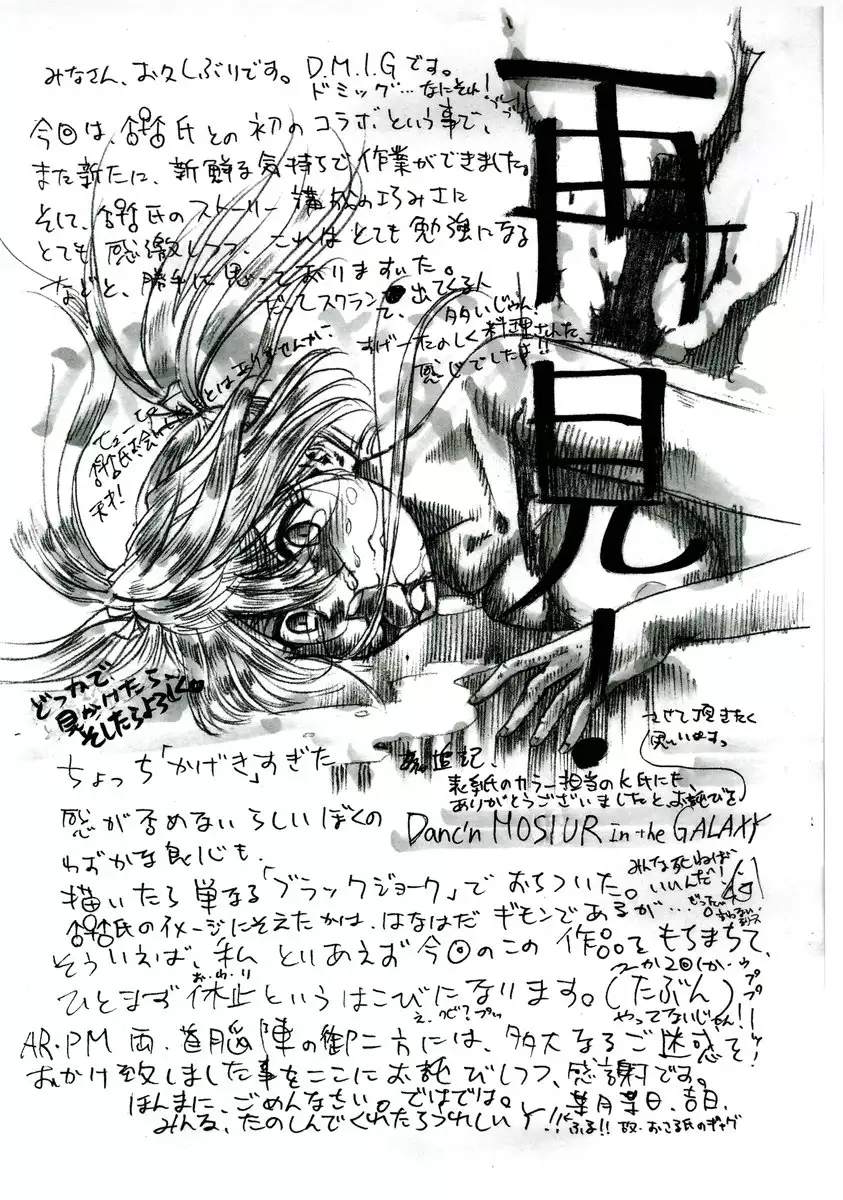 再見!
みなさん、お久しぶりです。D.M.I.Gです。
ドミッグ…なにそれ!
今回は、氏との初のコラボという事で、
また新たに、新鮮な気持ちで作業ができました。
そして、氏のストーリー講成の巧みさに
とても感激しつつ、これはとても勉強になる
などと、勝手に思っておりますた。
だってスクラン 出てくる人
て、タタいじゃん!
すげーたのしく料理されたっ
感じでしたよ!!
とはありませんか、
天才!
どっかで
見かけたら
そしたらよろしく。
ちょっち「かげき」すぎた
感が否めないらしいぼくの
わずかな良心も、
描いたら単なる「ブラックジョーク」でおちついた。
氏のイメージにそえたかは、はなはだギモンであるが….
そういえば、私 といあえず今回のこの作品をもちまちて、
お・わ・り
ひとまず休止というはこびになります。(たぶん)
AR・PM両首脳陣の御二方には、多大なるご迷惑を
おかけ致しました事をここにお詫びしつつ、感謝です。
ほんまに、ごめんなさい。ではでは。
みんな、たのしんでくれたらうれしいY!!
追記、
表紙のカラー担当のK氏にも、
ありがとうございましたと、お詫びを
させて頂きたく
思いますっ
Danc'n MOSIUR in the GALAXY
みんな死ねば
いいんだ!
やってないじゃん!!
葉月葉日、吉日、